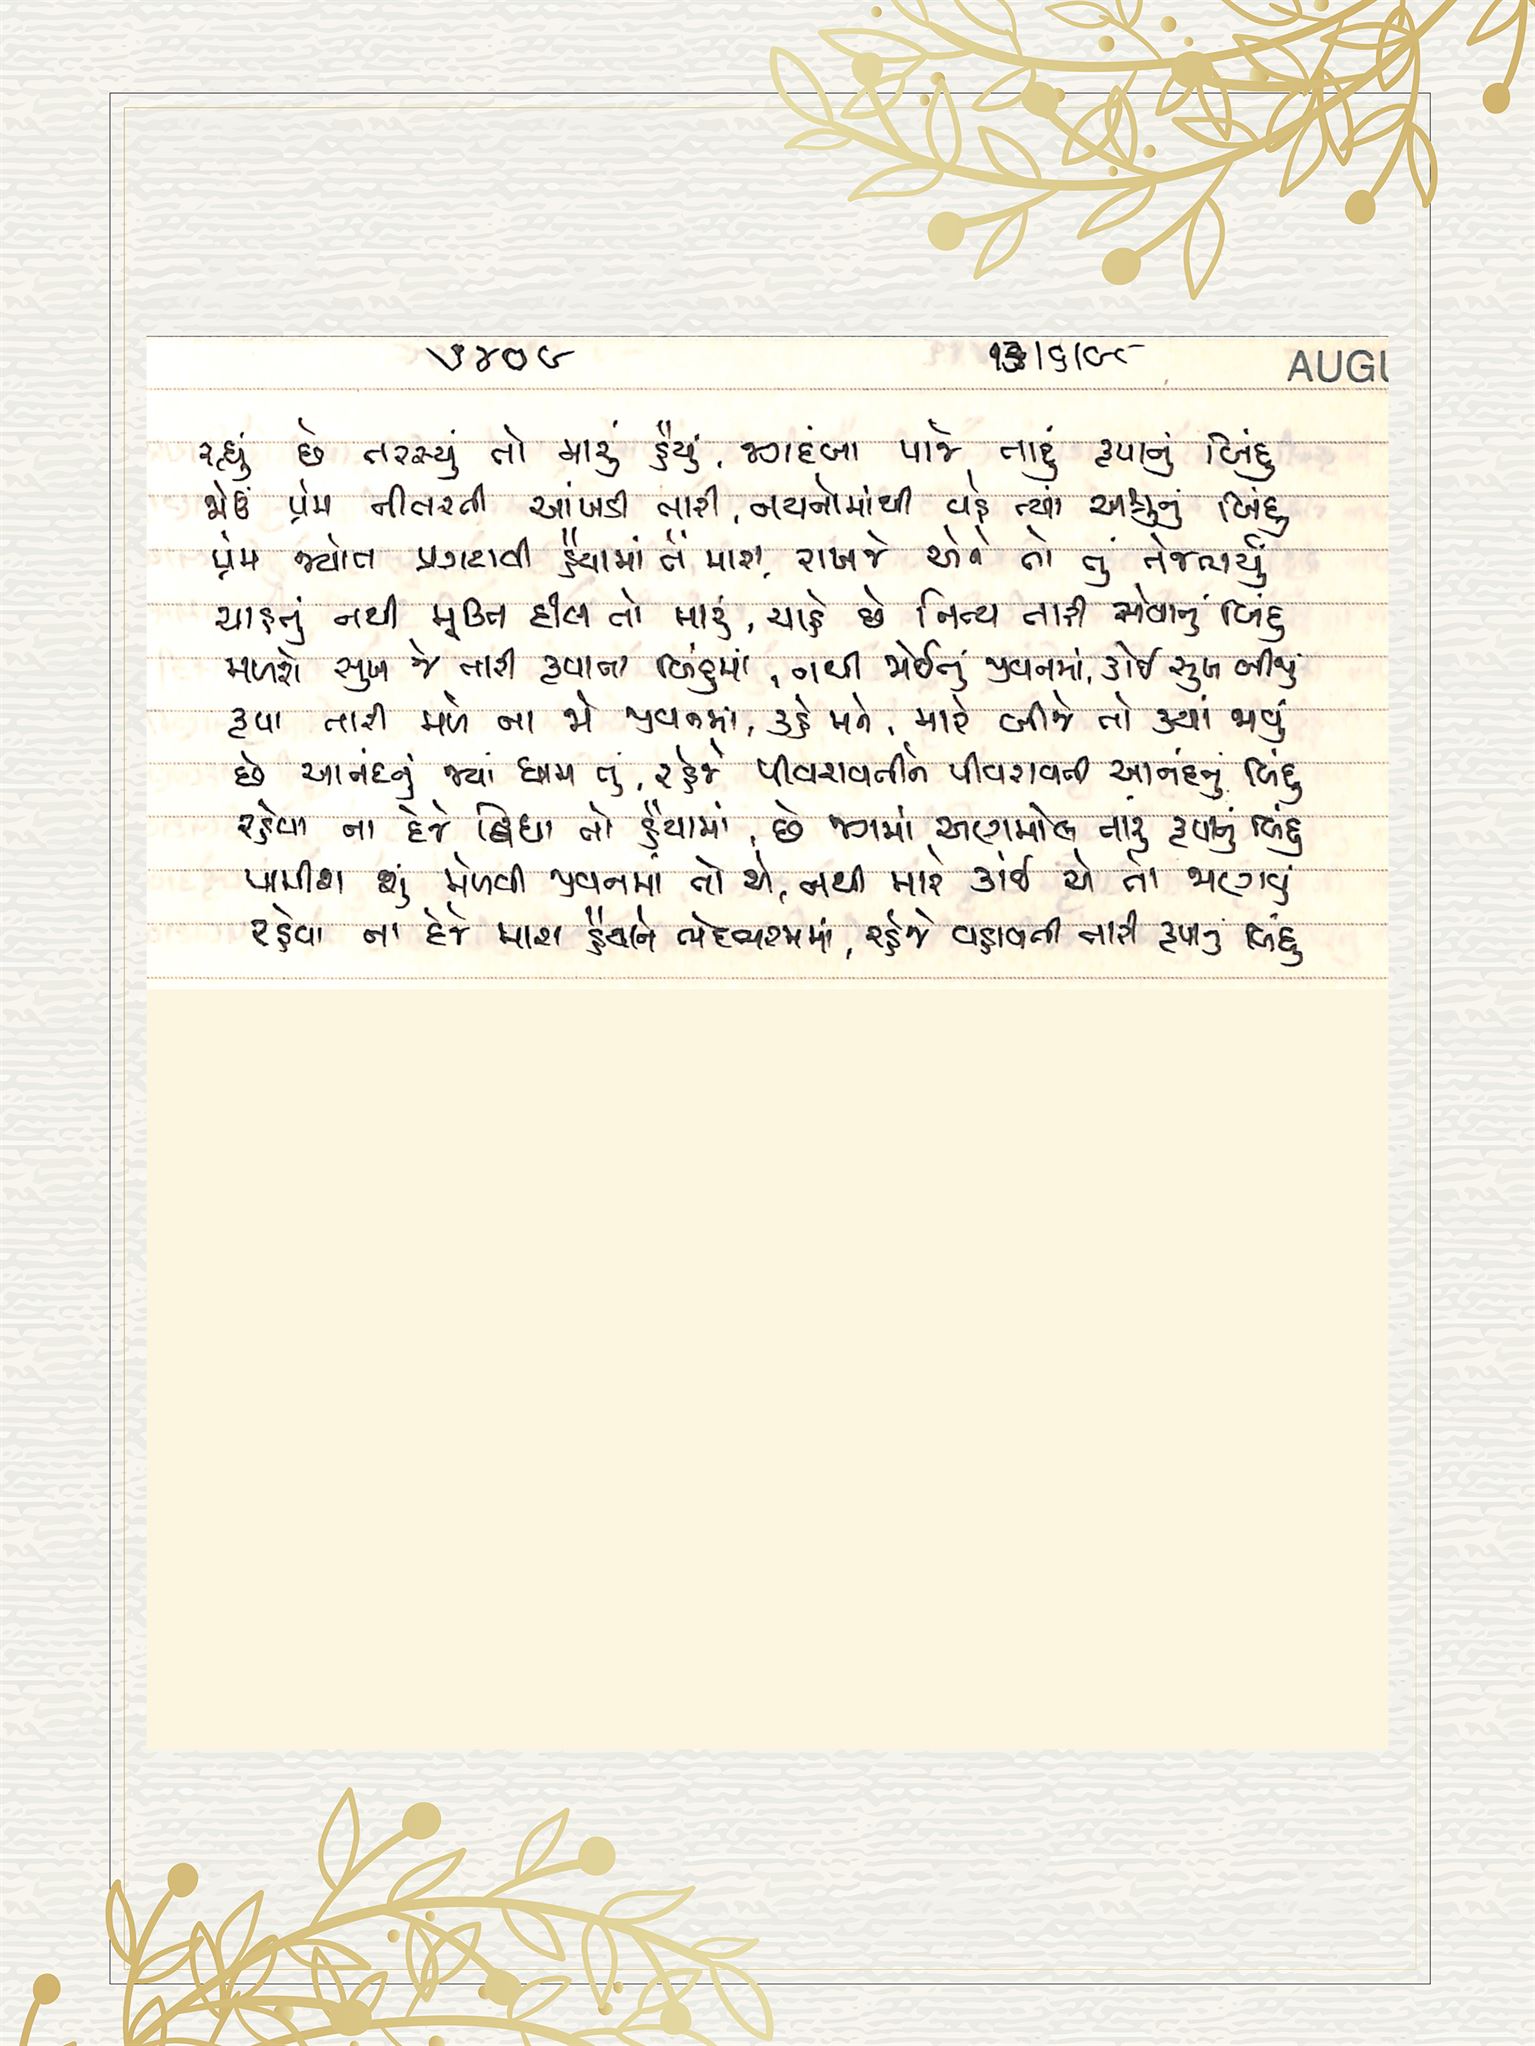 ૫૪૦૯ ૧૩/૬/૯૯ AUGU
રહ્યું છે તરસ્યું તો મારું હૈયું, જગદંબા પાજે તારું કૃપાનું બિંદુ
જોઉં પ્રેમ નીતરતી આંખડી તારી, નયનોમાંથી વહે ત્યાં અશ્રુનું બિંદુ
પ્રેમ જ્યોત પ્રગટાવી હૈયામાં તેં મારા, રાખજે એને તો તું તેજભર્યું
ચાહતું નથી મુક્તિ દીલ તો મારું, ચાહે છે નિત્ય તારી સેવાનું બિંદુ
મળશે સુખ જે તારી કૃપાના બિંદુમાં, નથી જોઈતું જીવનમાં, કોઈ સુખ બીજું
કૃપા તારી મળે ના જો જીવનમાં, કહે મને, મારે બીજે તો ક્યાં જવું
છે આનંદનું જ્યાં ધામ તું, રહેજે પીવરાવતીને પીવરાવતી આનંદનું બિંદુ
રહેવા ના દેજે દ્વિધા તો હૈયામાં, છે જગમાં અણમોલ તારું કૃપાનું બિંદુ
પામીશ શું મેળવી જીવનમાં તો એ, નથી મારે કાંઈ એ તો જાણવું
રહેવા ના દેજે મારા હૈયાને ભેદભરમમાં, રહેજે વહાવતી તારી કૃપાનું બિંદુ